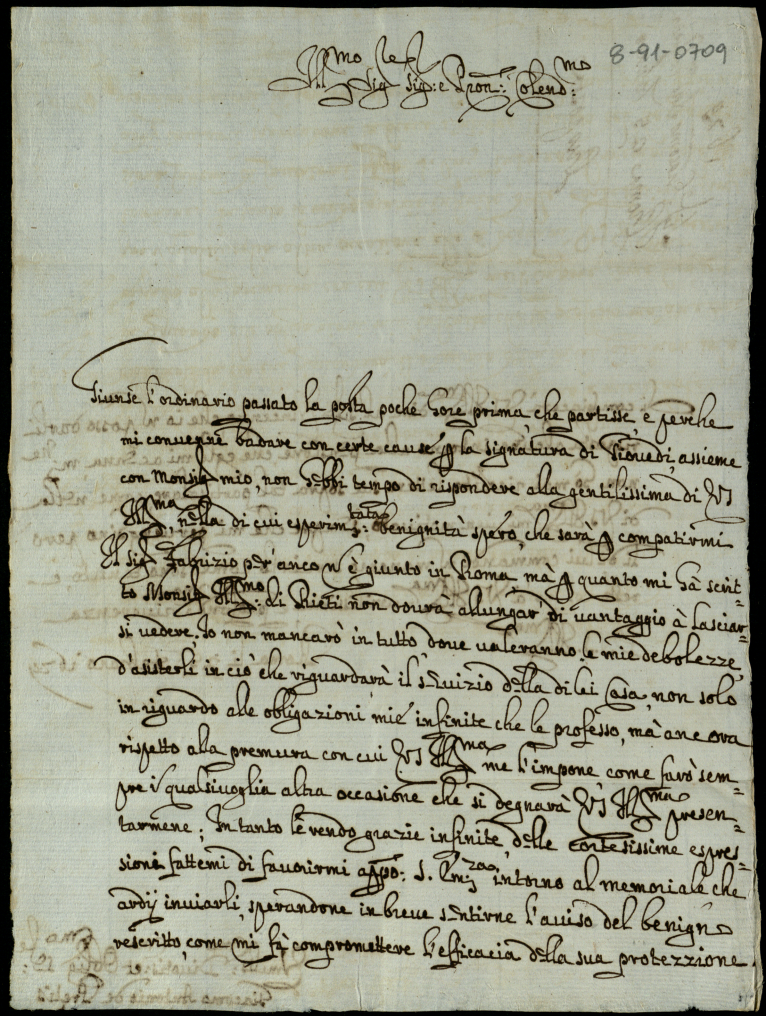 8-91-0709
Ill.mo Sig.r Sig.r e Pron. Colend.mo
Giunse l'ordinario passato la posta poche hore prima che partisse, e perche
mi convenne badare con certe cause p la signatura di Giovedi, assieme
con Monsig.r mio, non hebbi tempo di rispondere alla gentilissima di VS
Ill.ma, nella di cui esperim.tata benignità spero, che sarà p compatirmi
Il sig.r Fabrizio per anco n è giunto in Roma mà p quanto mi hà scrit=
to Monsig.r Ill.mo di Rieti non dourà allungar di vantaggio à lasciar=
si vedere. Io non mancarò in tutto dove valeranno le mie debolezze,
d'asisterli in ciò che riguardarà il servizio della di lei Casa, non solo
in riguardo alle obligazioni mie infinite che le professo, mà ancora
rispetto alla premura con cui VS Ill.ma me l'impone come farò sem=
pre i qualsivoglia altra occasione che si degnarà VS Ill.ma presen=
tarmene; In tanto le rendo grazie infinite delle cortesissime espres=
sioni fattemi di favorirmi app.o S. Em.za intorno al memoriale che
ardij inviarli, sperandone in breve sentirne l'aviso del benigno
rescritto, come mi fà compromettere l'efficacia della sua protezzione.